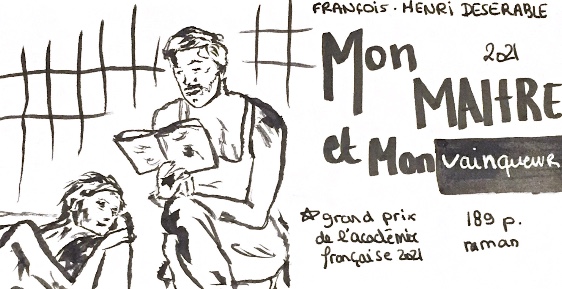 FRANÇOIS-HENRI DESERABLE
Mon
2021
MAITRE
et Mon vainqueur
☆ grand prix
de l'acadèmie
française 2021
189 p.
roman